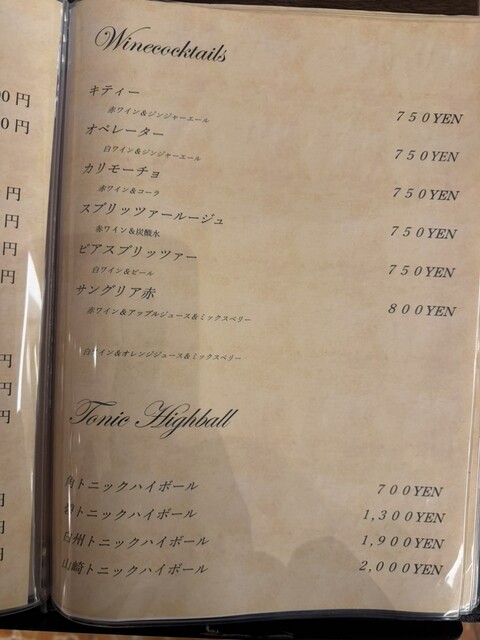 Winecocktails
キティー
赤ワイン&ジンジャーエール
750YEN
オペレーター
白ワイン&ジンジャーエール
750YEN
カリモーチョ
赤ワイン&コーラ
750YEN
スプリッツァールージュ
赤ワイン&炭酸水
750YEN
ビアスプリッツァー
白ワイン&ビール
750YEN
サングリア赤
赤ワイン&アップルジュース&ミックスベリー
800YEN
白ワイン&オレンジジュース&ミックスベリー
Tonic Highball
角トニックハイボール
700YEN
トニックハイボール
1,300YEN
白州トニックハイボール
1,900YEN
山崎トニックハイボール
2,000YEN